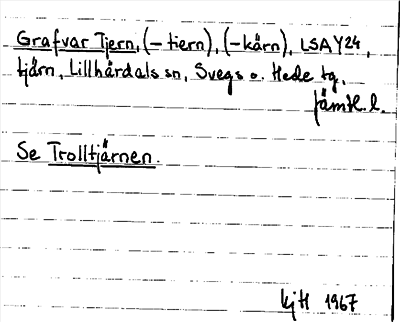 Grafvar Tjern, (- tiern), (- kärn), LSA Y24,
tjärn, Lillhärdals sn, Svegs o. Hede tg,
Jämtl. l.
Se Trolltjärnen.
1967